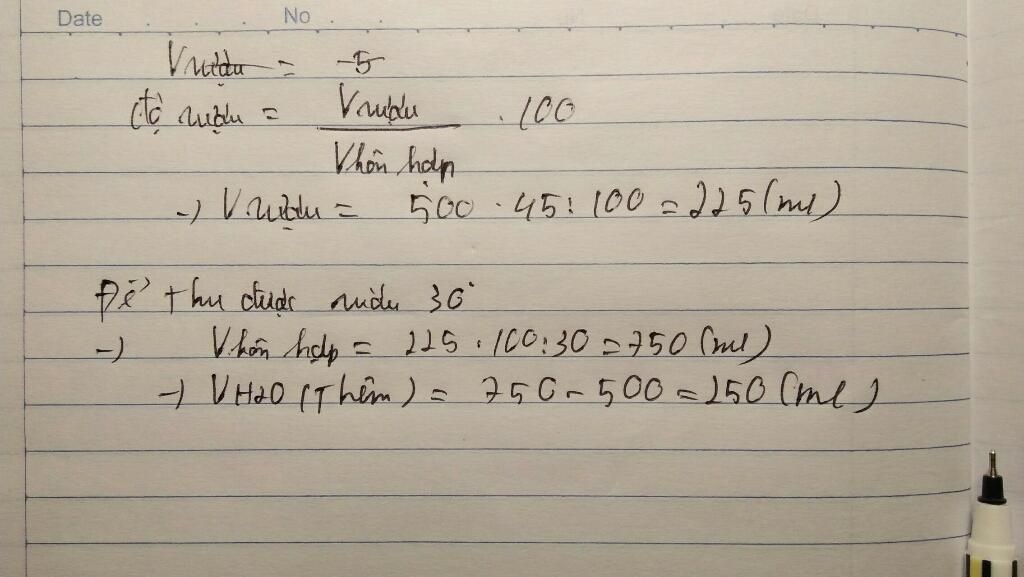 Date No
Vrượu = 5
Độ rượu = Vrượu / Vhỗn hợp . 100
→ Vrượu = 500 . 45 : 100 = 225 (ml)
Để thu được rượu 30°
→ Vhỗn hợp = 225 . 100 : 30 = 750 (ml)
→ VH2O (Thêm) = 750 - 500 = 250 (ml)